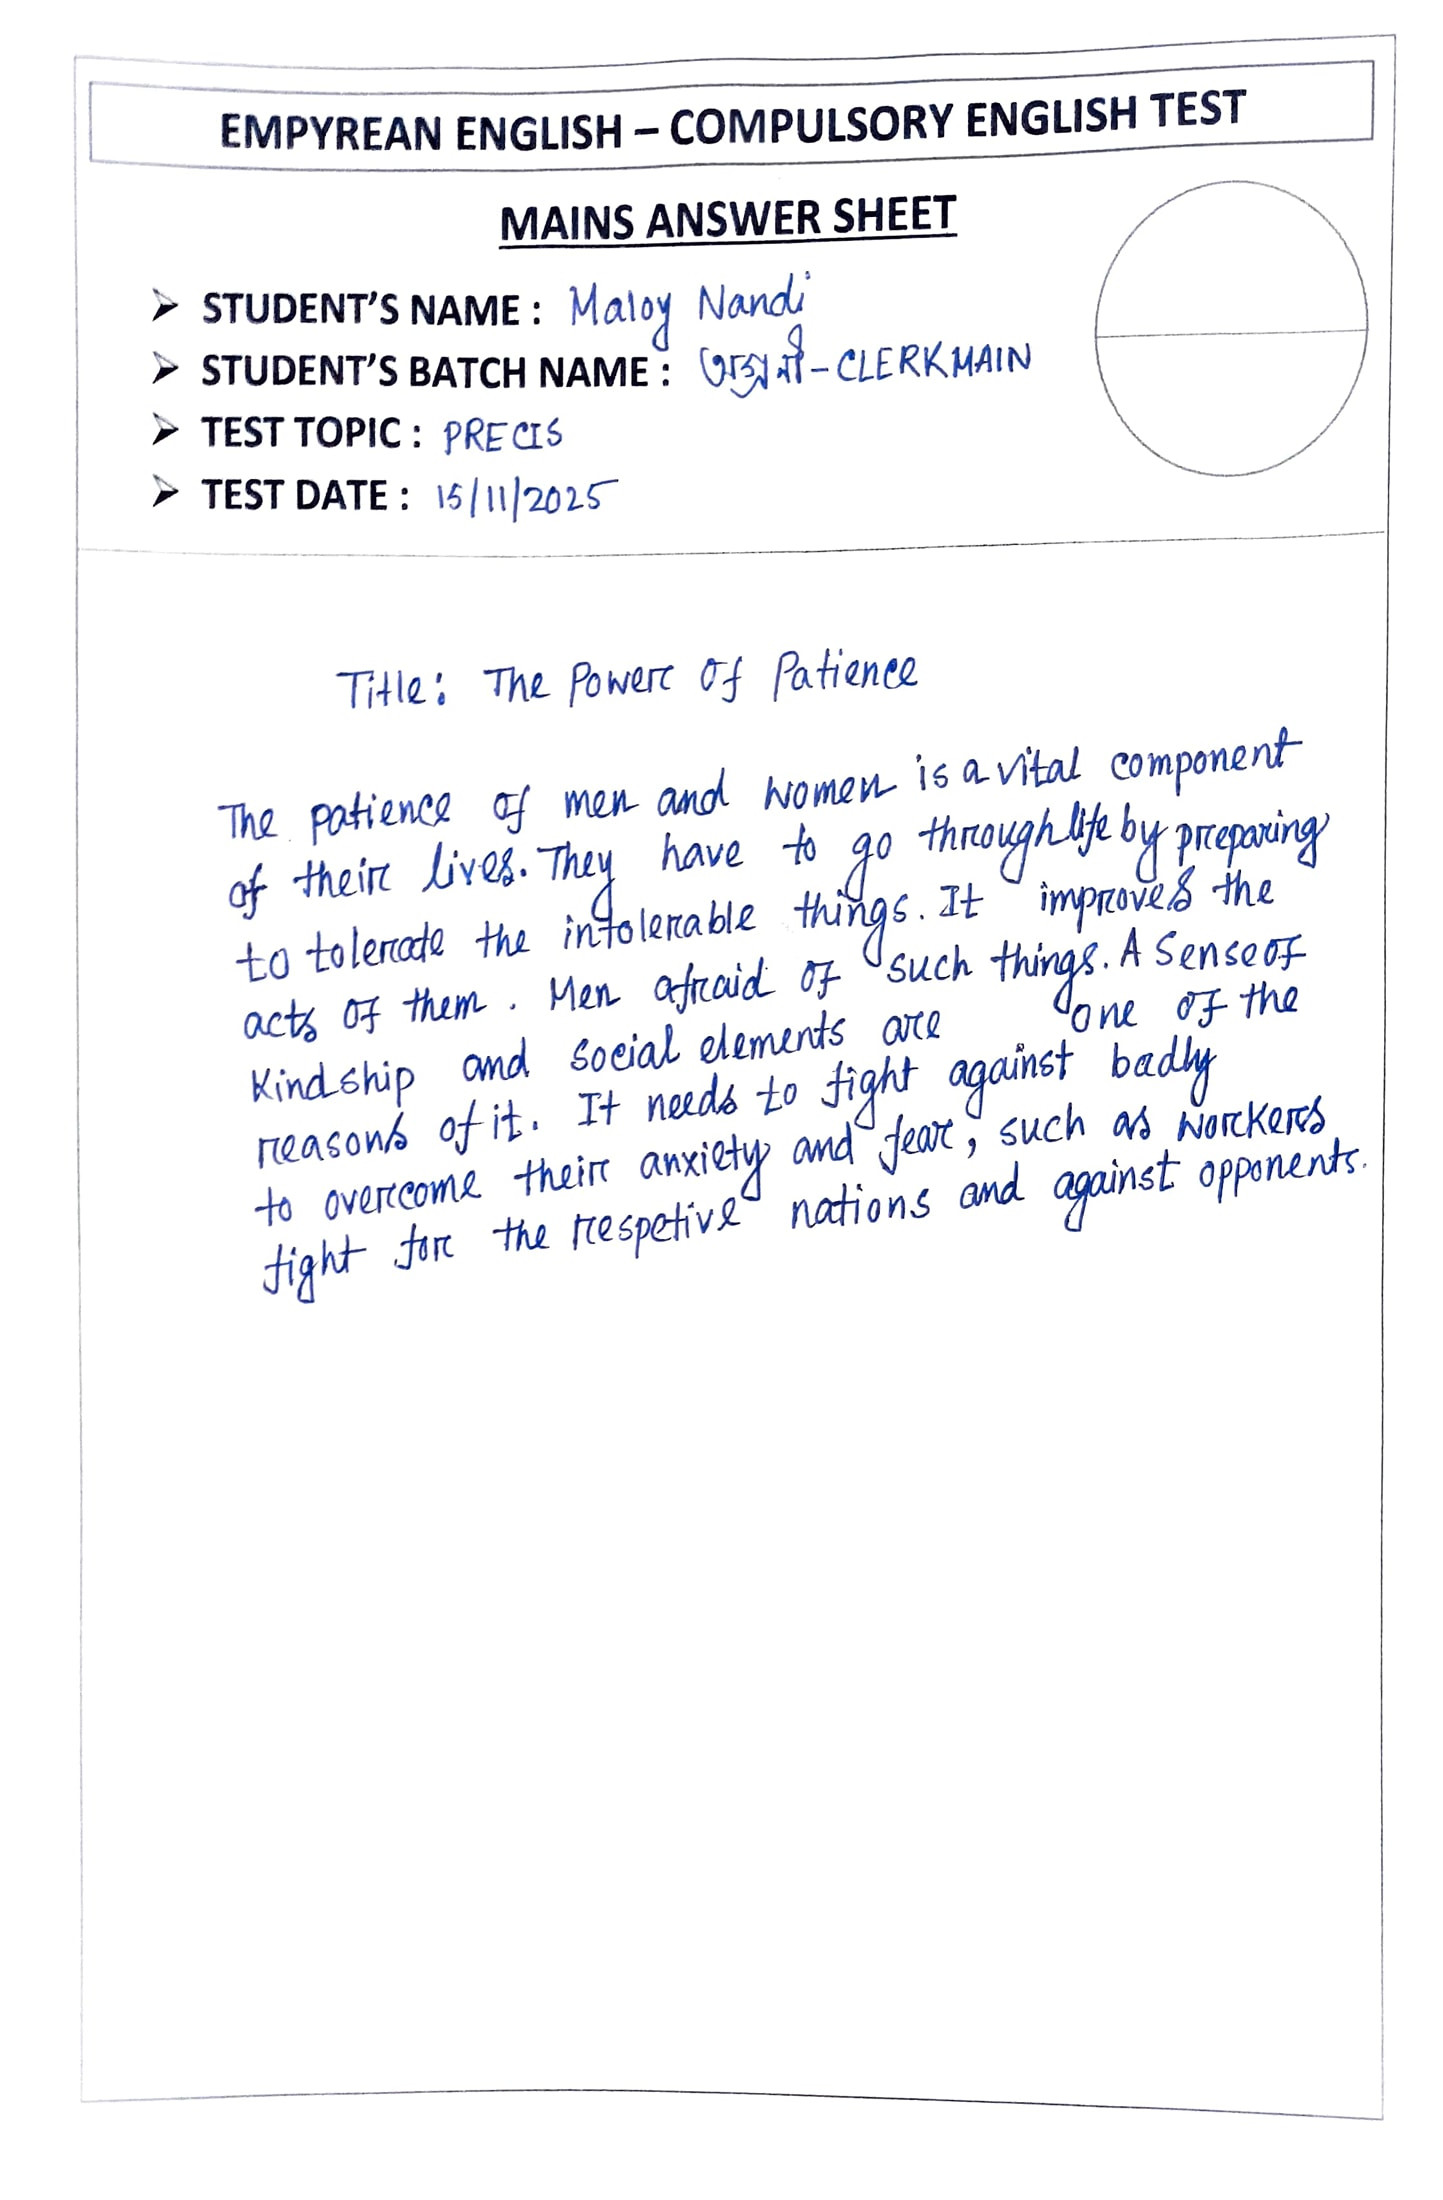 EMPYREAN ENGLISH – COMPULSORY ENGLISH TEST
MAINS ANSWER SHEET
➤ STUDENT'S NAME : Maloy Nandi
➤ STUDENT'S BATCH NAME : -CLERKMAIN
➤ TEST TOPIC : PRECIS
➤ TEST DATE : 15/11/2025
Title: The Power of Patience
The patience of men and women is a vital component
of their lives. They have to go through life by preparing
to tolerate the intolerable things. It improves the
acts of them. Men afraid of such things. A Sense of
Kindship and social elements are one of the
reasons of it. It needs to fight against badly
to overcome their anxiety and fear, such as workers
fight for the respetive nations and against opponents.